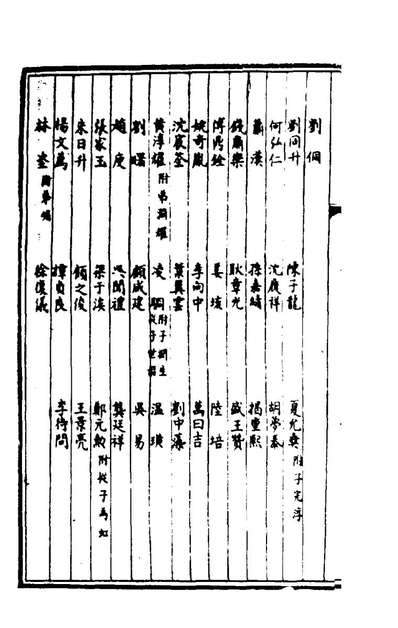 劉侗
劉同升 陳子龍 夏允彝 附子完淳
何弘仁 沈履祥 胡夢泰
蕭漢 孫嘉績 揭重熙
錢肅樂 耿章光 盛王贊
傅鼎銓 姜垓 陸培
姚奇胤 李向中 萬曰吉
沈宸荃 葉翼雲 劉中藻
黃淳耀 附弟淵耀 凌駉 附子生 從子世韶 温璜
劉曙 顧咸建 吳易
趙庚 吳聞禮 龔廷祥
張家玉 梁于涘 鄭元勳 附從子為虹
朱日升 顧之俊 王景亮
楊文薦 譚貞良 李待問
林垐 附弟嵋 徐復儀